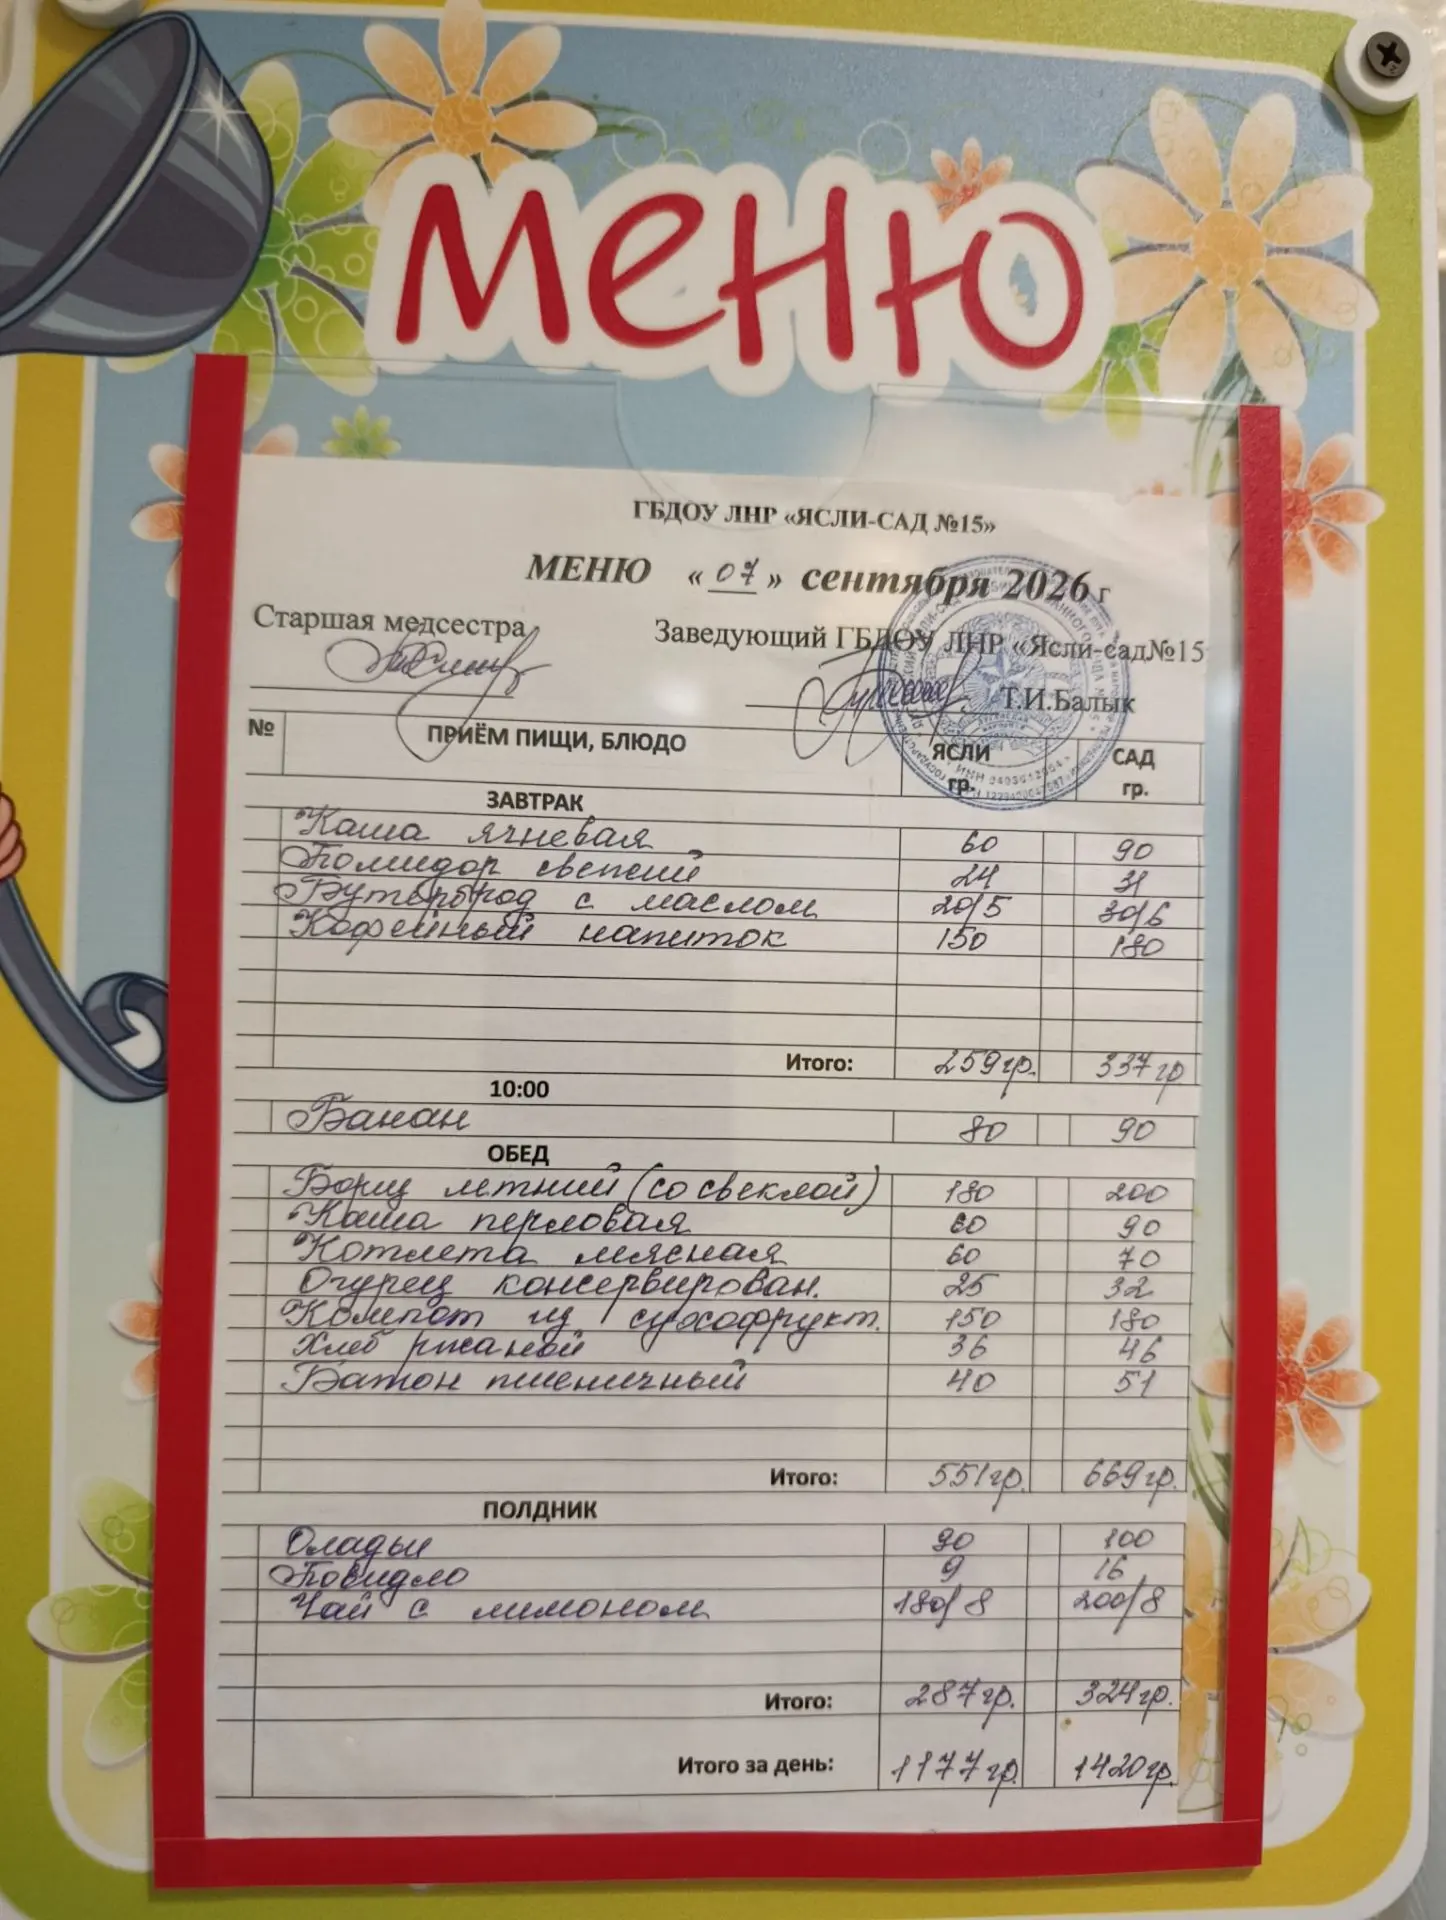 Меню
ГБДОУ ЛНР «ЯСЛИ-САД №15»
МЕНЮ «07» сентября 2026 г
Старшая медсестра Заведующий ГБДОУ ЛНР «Ясли-сад№15
Т.И.Балык
№ ПРИЁМ ПИЩИ, БЛЮДО ЯСЛИ гр. САД гр.
ЗАВТРАК
Каша ячневая 60 90
Помидор свежий 24 31
Бутерброд с маслом 20/5 30/6
Кофейный напиток 150 180
Итого: 259гр. 337гр
10:00
Банан 80 90
ОБЕД
Борщ летний (со свеклой) 180 200
Каша перловая 60 90
Котлета мясная 60 70
Огурец консервирован. 25 32
Компот из сухофрукт. 150 180
Хлеб ржаной 36 46
Батон пшеничный 40 51
Итого: 551гр. 669гр.
ПОЛДНИК
Оладьи 90 100
Повидло 9 16
Чай с лимоном 180/8 200/8
Итого: 287гр. 324гр.
Итого за день: 1177гр. 1420гр.